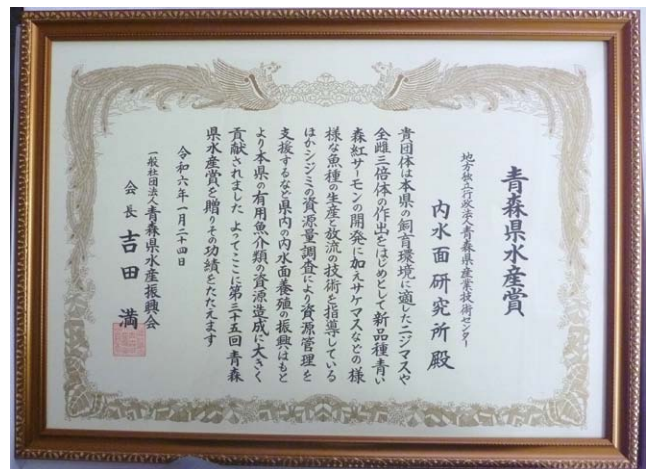 青森県水産賞
地方独立行政法人青森県産業技術センター
内水面研究所 殿
貴団体は本県の飼育環境に適したニジマスや
全雌三倍体の作出をはじめとして新品種青い
森紅サーモンの開発に加えサケマスなどの様
様な魚種の生産と放流の技術を指導している
ほかシジミの資源量調査により資源管理を
支援するなど県内の内水面養殖の振興はもと
より本県の有用魚介類の資源造成に大きく
貢献されました よってここに第三十五回 青森
県水産賞を贈りその功績をたたえます
令和六年一月二十四日
一般社団法人青森県水産振興会
会長 吉田 満